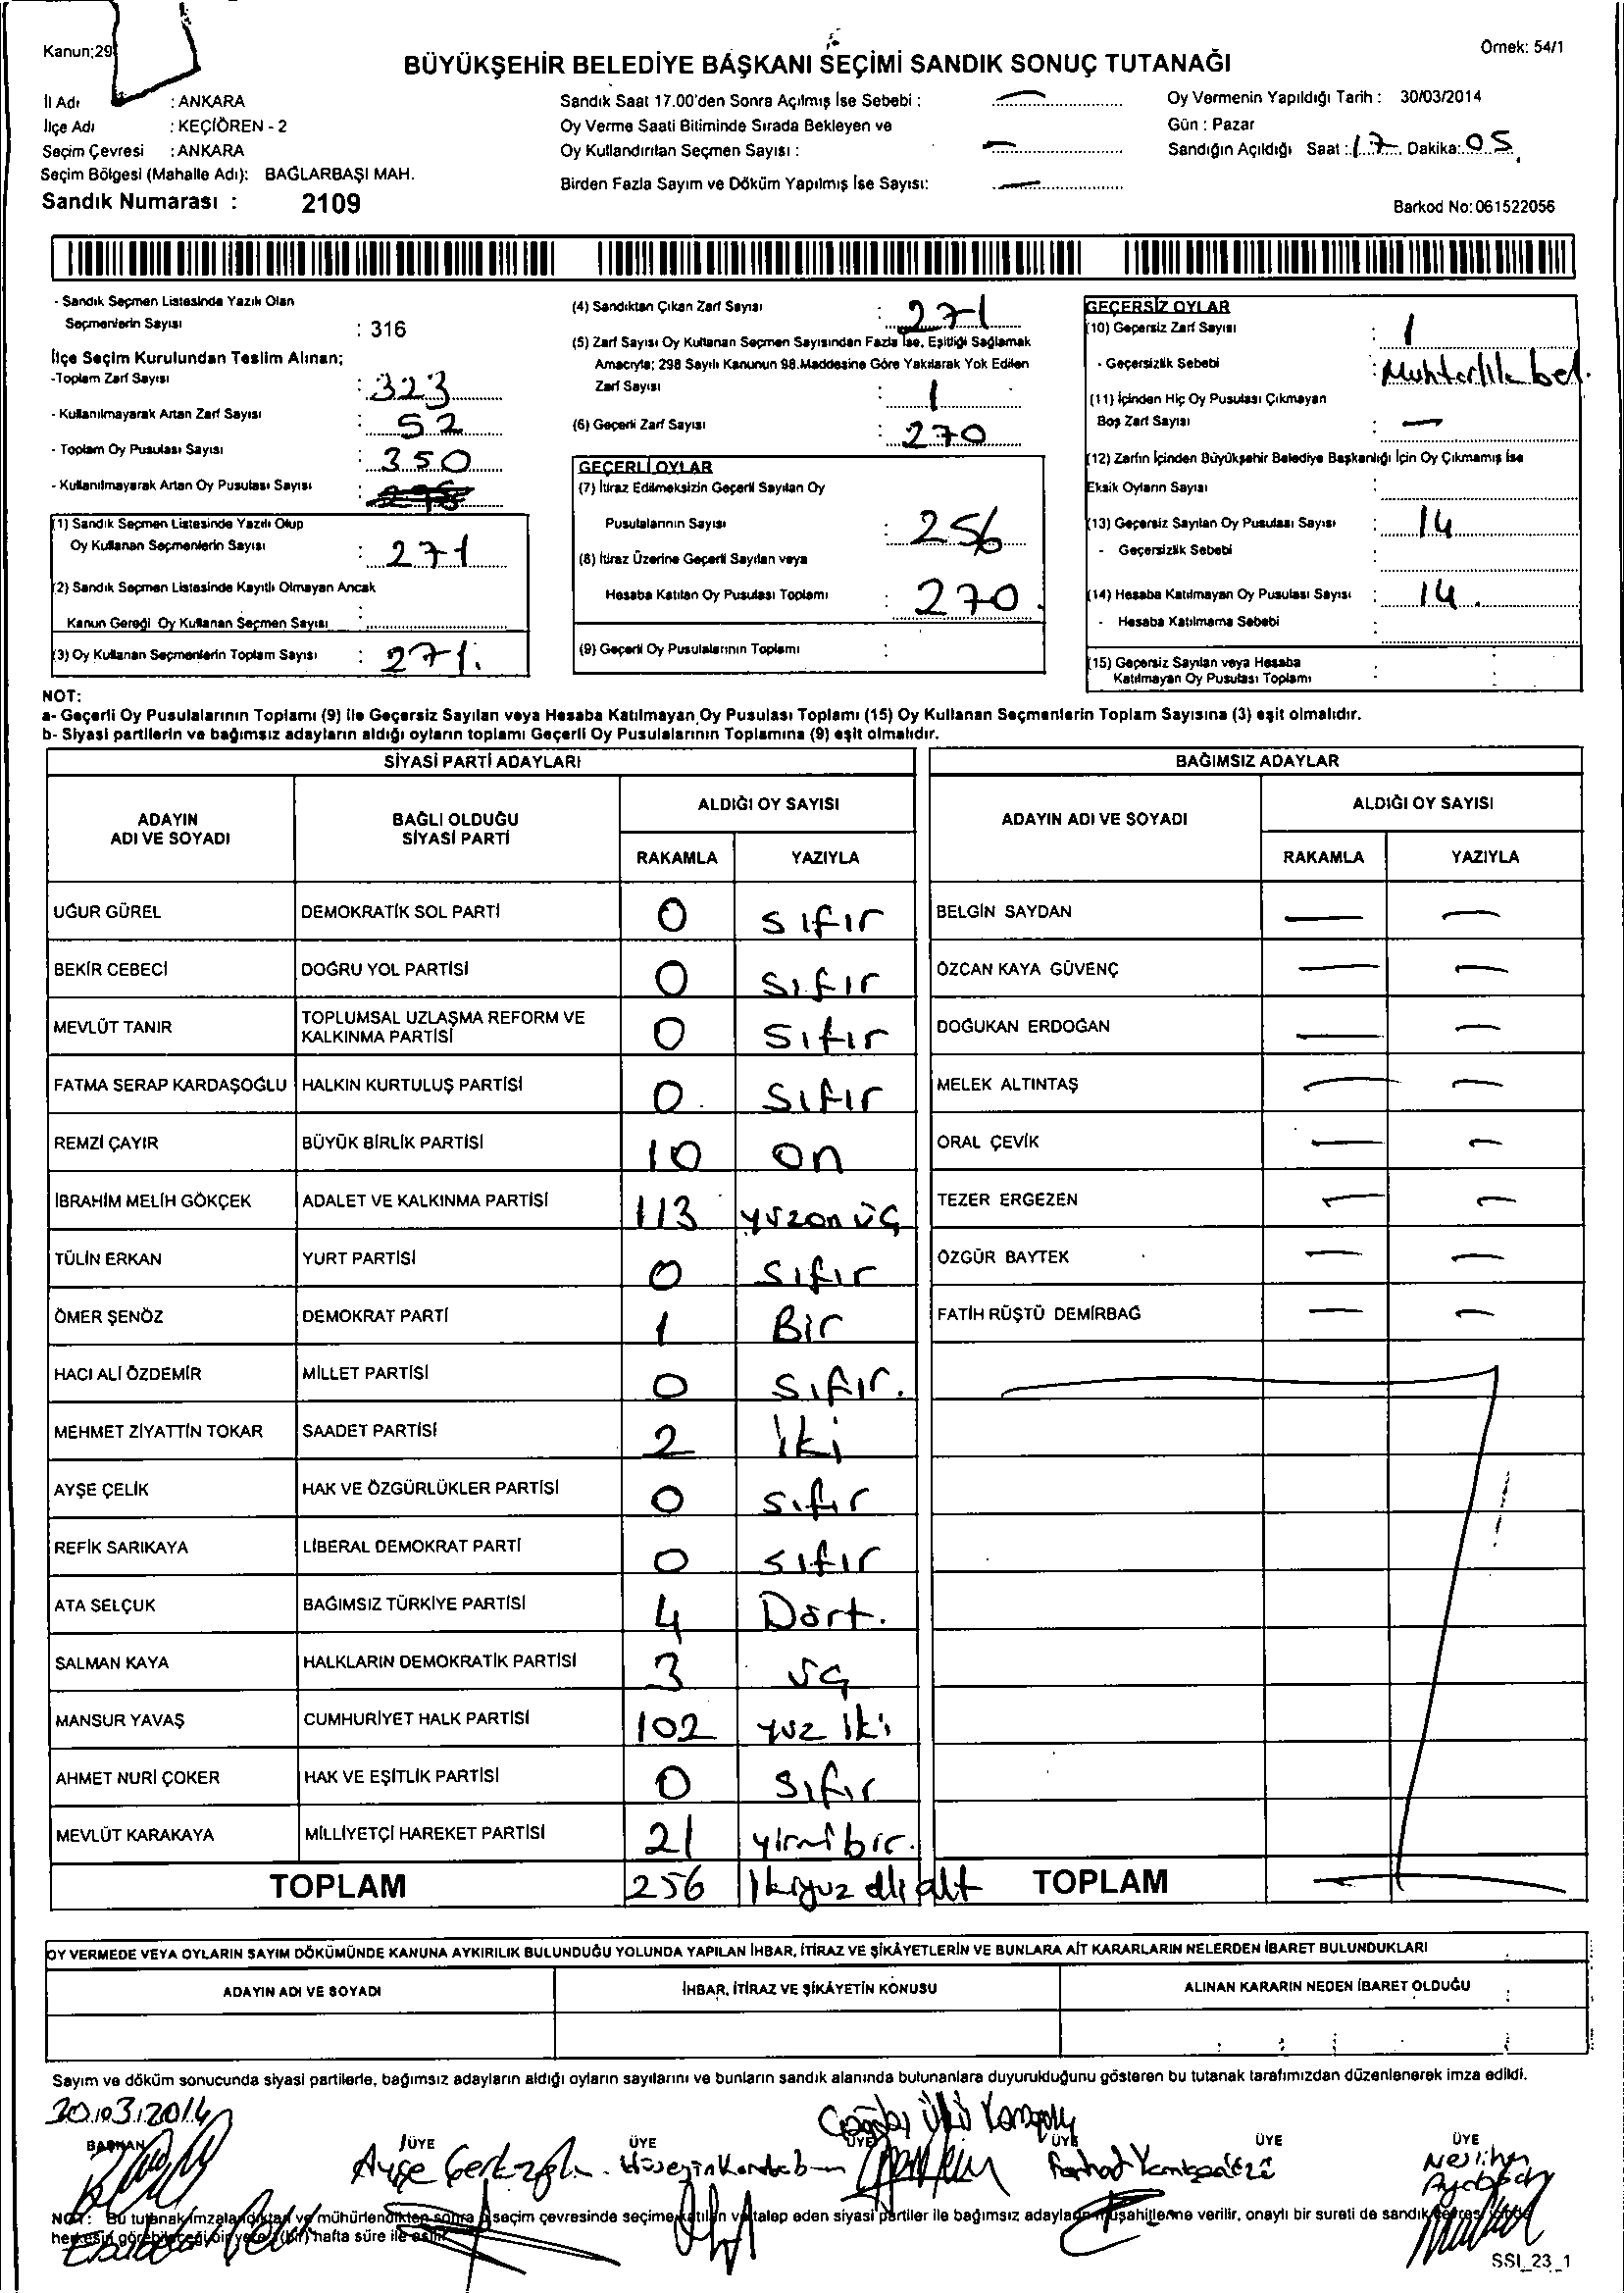 Kanun;29
Örnek: 54/1
BÜYÜKŞEHİR BELEDİYE BAŞKANI SEÇİMİ SANDIK SONUÇ TUTANAĞI
İl Adı : ANKARA
İlçe Adı : KEÇİÖREN - 2
Seçim Çevresi : ANKARA
Seçim Bölgesi (Mahalle Adı): BAĞLARBAŞI MAH.
Sandık Numarası : 2109
Sandık Saat 17.00'den Sonra Açılmış İse Sebebi : —
Oy Verme Saati Bitiminde Sırada Bekleyen ve
Oy Kullandırılan Seçmen Sayısı : —
Birden Fazla Sayım ve Döküm Yapılmış İse Sayısı: —
Oy Vermenin Yapıldığı Tarih : 30/03/2014
Gün : Pazar
Sandığın Açıldığı Saat : 17 Dakika: 05
Barkod No: 061522056
- Sandık Seçmen Listesinde Yazılı Olan
Seçmenlerin Sayısı : 316
İlçe Seçim Kurulundan Teslim Alınan;
-Toplam Zarf Sayısı : 323
- Kullanılmayarak Artan Zarf Sayısı : 52
- Toplam Oy Pusulası Sayısı : 350
- Kullanılmayarak Artan Oy Pusulası Sayısı :
(1) Sandık Seçmen Listesinde Yazılı Olup
Oy Kullanan Seçmenlerin Sayısı : 271
(2) Sandık Seçmen Listesinde Kayıtlı Olmayan Ancak
Kanun Gereği Oy Kullanan Seçmen Sayısı :
(3) Oy Kullanan Seçmenlerin Toplam Sayısı : 271.
(4) Sandıktan Çıkan Zarf Sayısı : 271
(5) Zarf Sayısı Oy Kullanan Seçmen Sayısından Fazla İse, Eşitliği Sağlamak
Amacıyla; 298 Sayılı Kanunun 98.Maddesine Göre Yakılarak Yok Edilen
Zarf Sayısı : 1
(6) Geçerli Zarf Sayısı : 270
GEÇERLİ OYLAR
(7) İtiraz Edilmeksizin Geçerli Sayılan Oy
Pusulalarının Sayısı : 256
(8) İtiraz Üzerine Geçerli Sayılan veya
Hesaba Katılan Oy Pusulası Toplamı : 270.
(9) Geçerli Oy Pusulalarının Toplamı :
GEÇERSİZ OYLAR
(10) Geçersiz Zarf Sayısı : 1
- Geçersizlik Sebebi : Muhtarlık bel.
(11) İçinden Hiç Oy Pusulası Çıkmayan
Boş Zarf Sayısı : —
(12) Zarfın İçinden Büyükşehir Belediye Başkanlığı İçin Oy Çıkmamış İse
Eksik Oyların Sayısı :
(13) Geçersiz Sayılan Oy Pusulası Sayısı : 14
- Geçersizlik Sebebi :
(14) Hesaba Katılmayan Oy Pusulası Sayısı : 14.
- Hesaba Katılmama Sebebi :
(15) Geçersiz Sayılan veya Hesaba
Katılmayan Oy Pusulası Toplamı :
NOT:
a- Geçerli Oy Pusulalarının Toplamı (9) ile Geçersiz Sayılan veya Hesaba Katılmayan Oy Pusulası Toplamı (15) Oy Kullanan Seçmenlerin Toplam Sayısına (3) eşit olmalıdır.
b- Siyasi partilerin ve bağımsız adayların aldığı oyların toplamı Geçerli Oy Pusulalarının Toplamına (9) eşit olmalıdır.
SİYASİ PARTİ ADAYLARI
ADAYIN ADI VE SOYADI BAĞLI OLDUĞU SİYASİ PARTİ ALDIĞI OY SAYISI
RAKAMLA YAZIYLA
UĞUR GÜREL DEMOKRATİK SOL PARTİ 0 sıfır
BEKİR CEBECİ DOĞRU YOL PARTİSİ 0 sıfır
MEVLÜT TANIR TOPLUMSAL UZLAŞMA REFORM VE KALKINMA PARTİSİ 0 sıfır
FATMA SERAP KARDAŞOĞLU HALKIN KURTULUŞ PARTİSİ 0 sıfır
REMZİ ÇAYIR BÜYÜK BİRLİK PARTİSİ 10 on
İBRAHİM MELİH GÖKÇEK ADALET VE KALKINMA PARTİSİ 113 yüzon üç
TÜLİN ERKAN YURT PARTİSİ 0 sıfır
ÖMER ŞENÖZ DEMOKRAT PARTİ 1 Bir
HACI ALİ ÖZDEMİR MİLLET PARTİSİ 0 sıfır.
MEHMET ZİYATTİN TOKAR SAADET PARTİSİ 2 iki
AYŞE ÇELİK HAK VE ÖZGÜRLÜKLER PARTİSİ 0 sıfır
REFİK SARIKAYA LİBERAL DEMOKRAT PARTİ 0 sıfır
ATA SELÇUK BAĞIMSIZ TÜRKİYE PARTİSİ 4 Dört.
SALMAN KAYA HALKLARIN DEMOKRATİK PARTİSİ 3 üç
MANSUR YAVAŞ CUMHURİYET HALK PARTİSİ 102 yüz iki
AHMET NURİ ÇOKER HAK VE EŞİTLİK PARTİSİ 0 sıfır
MEVLÜT KARAKAYA MİLLİYETÇİ HAREKET PARTİSİ 21 yirmibir.
TOPLAM 256 ikiyuz elli altı
BAĞIMSIZ ADAYLAR
ADAYIN ADI VE SOYADI ALDIĞI OY SAYISI
RAKAMLA YAZIYLA
BELGİN SAYDAN — —
ÖZCAN KAYA GÜVENÇ — —
DOĞUKAN ERDOĞAN — —
MELEK ALTINTAŞ — —
ORAL ÇEVİK — —
TEZER ERGEZEN — —
ÖZGÜR BAYTEK — —
FATİH RÜŞTÜ DEMİRBAĞ — —
TOPLAM —
OY VERMEDE VEYA OYLARIN SAYIM DÖKÜMÜNDE KANUNA AYKIRILIK BULUNDUĞU YOLUNDA YAPILAN İHBAR, İTİRAZ VE ŞİKÂYETLERİN VE BUNLARA AİT KARARLARIN NELERDEN İBARET BULUNDUKLARI
ADAYIN ADI VE SOYADI İHBAR, İTİRAZ VE ŞİKÂYETİN KONUSU ALINAN KARARIN NEDEN İBARET OLDUĞU
Sayım ve döküm sonucunda siyasi partilerle, bağımsız adayların aldığı oyların sayılarını ve bunların sandık alanında bulunanlara duyurulduğunu gösteren bu tutanak tarafımızdan düzenlenerek imza edildi.
30.03.2014
BAŞKAN ÜYE ÜYE ÜYE ÜYE ÜYE ÜYE
Ayşe
Neslihan
NOT: Bu tutanak imzalandıktan ve mühürlendikten sonra o seçim çevresinde seçime katılan ve talep eden siyasi partiler ile bağımsız adayların müşahitlerine verilir, onaylı bir sureti de sandık çevresinde
herkesin görebileceği bir yere 1 (bir) hafta süre ile asılır.
SSI_23_1